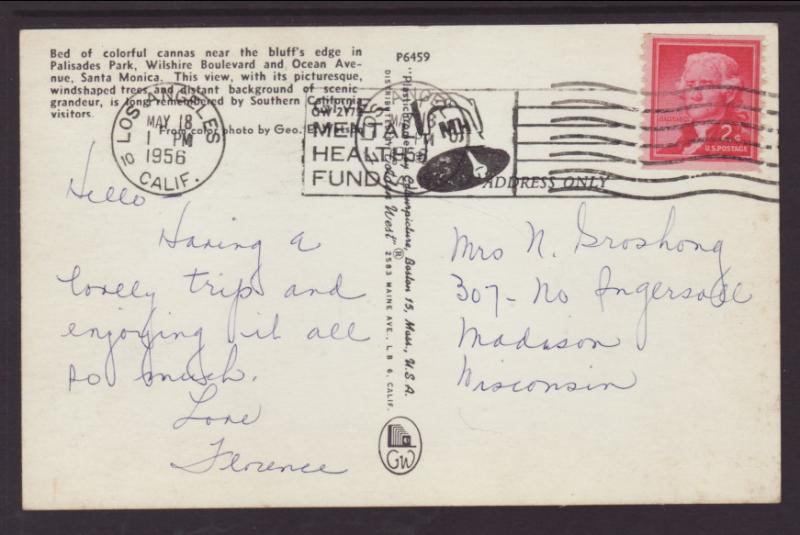 Bed of colorful cannas near the bluff's edge in
Palisades Park, Wilshire Boulevard and Ocean Ave-
nue, Santa Monica. This view, with its picturesque,
windshaped trees and distant background of scenic
grandeur, is long remembered by Southern California
visitors.
GW-217
From color photo by Geo.
P6459
LOS ANGELES
MAY 18
1 PM
1956
10
CALIF.
MENTAL
HEALTH
FUND
MH
ADDRESS ONLY
2¢
U.S. POSTAGE
Hello
Having a
lovely trip and
enjoying it all
so much.
Love
Florence
Mrs N. Groshong
307- No Ingersoll
Madison
Wisconsin
Colourpicture, Boston 15, Mass., U.S.A.
Golden West" ®
2583 MAINE AVE., L B 6, CALIF.
GW